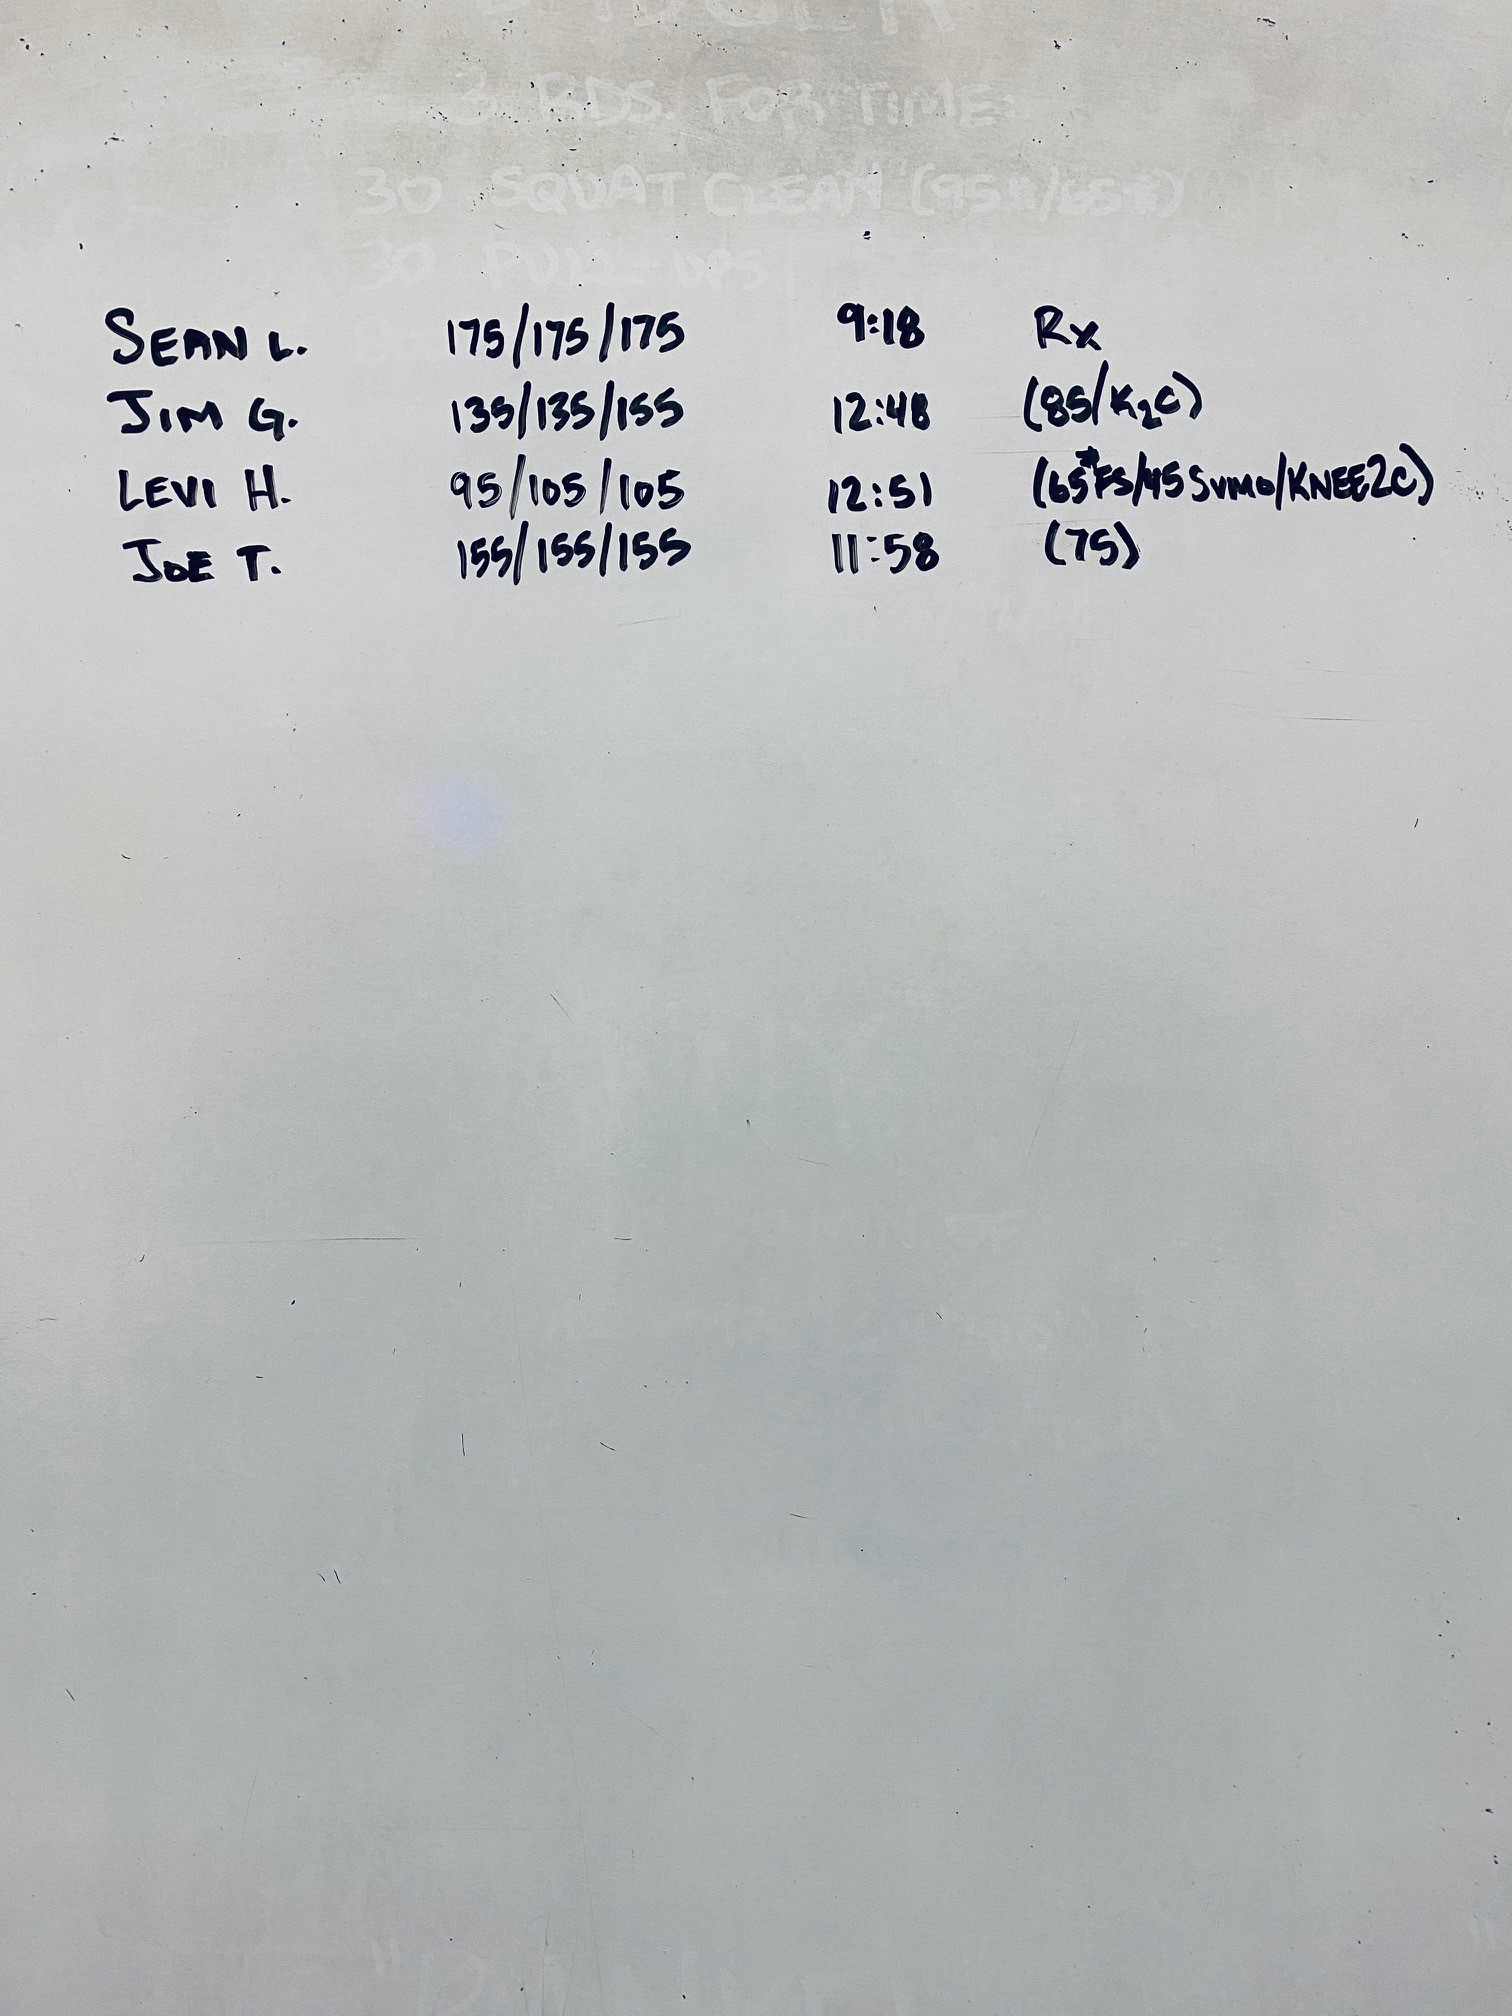 3 RDS. FOR TIME:
30 SQUAT CLEAN (95#/65#)
30 PULL-UPS
SEAN L. 175/175/175 9:18 Rx
JIM G. 135/135/155 12:48 (85/K2C)
LEVI H. 95/105/105 12:51 (65#FS/45 SUMO/KNEE2C)
JOE T. 155/155/155 11:58 (75)